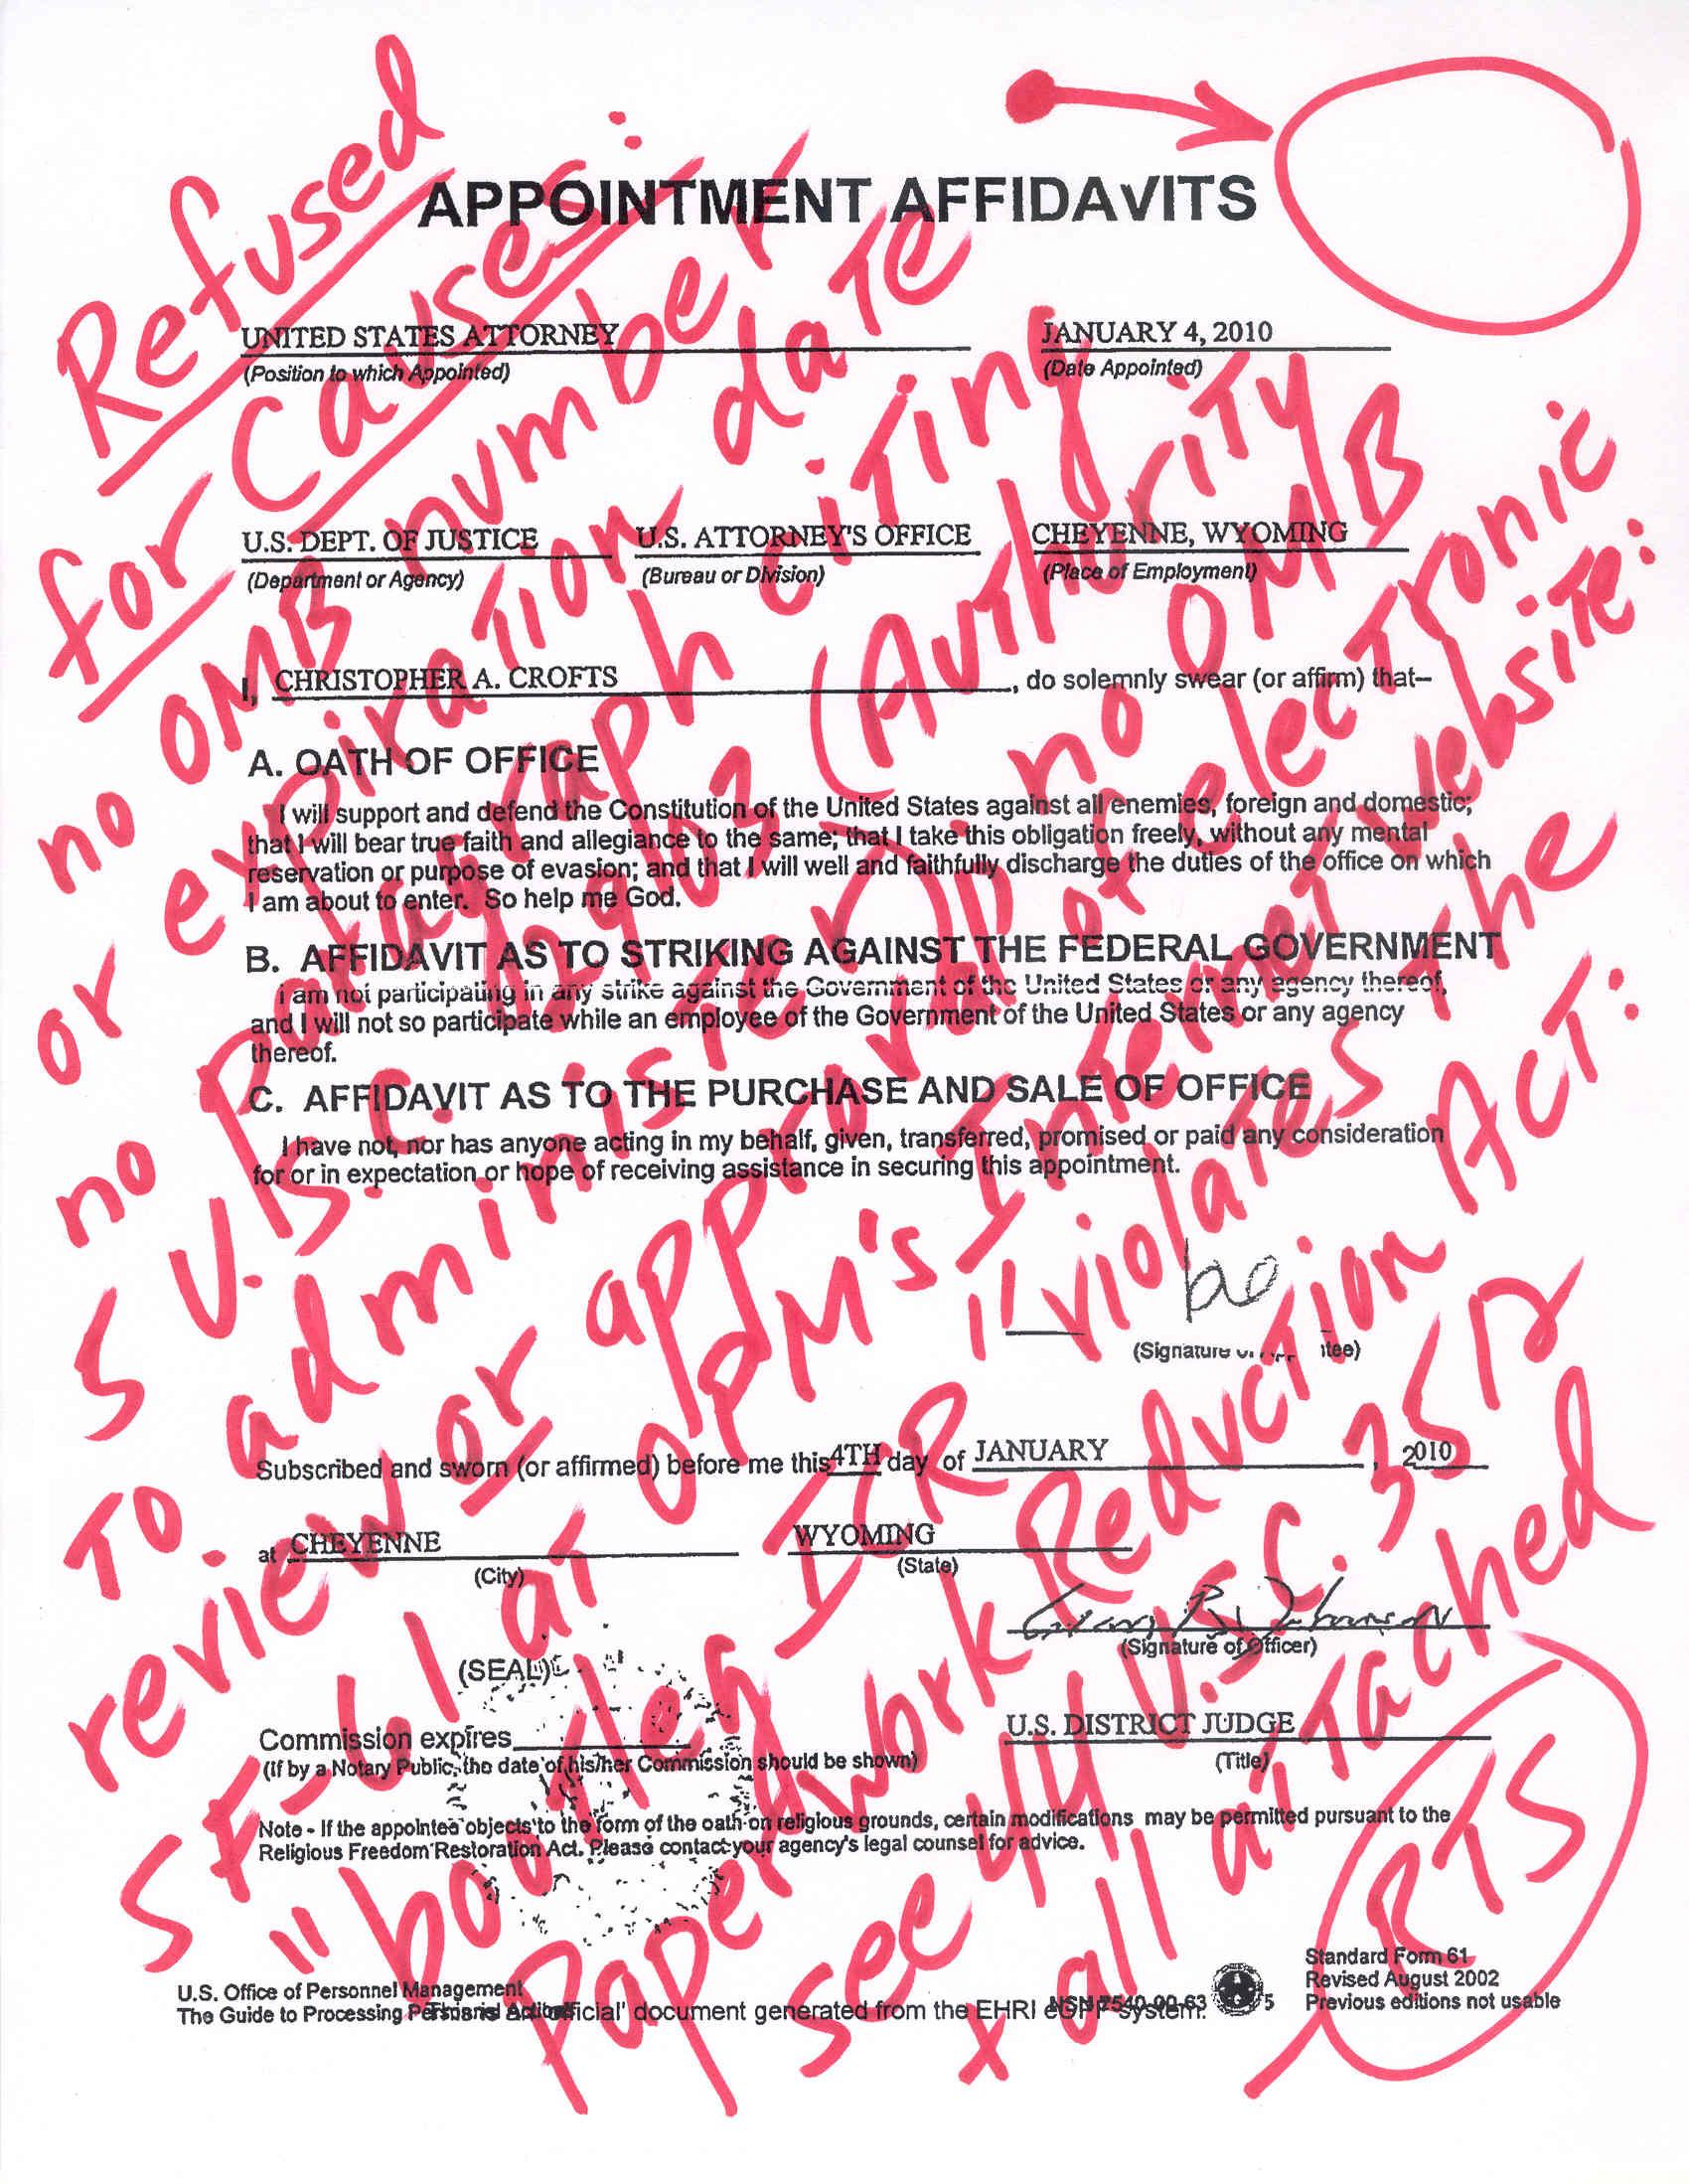 APPOINTMENT AFFIDAVITS
UNITED STATES ATTORNEY JANUARY 4, 2010
(Position to which Appointed) (Date Appointed)
U.S. DEPT. OF JUSTICE U.S. ATTORNEY'S OFFICE CHEYENNE, WYOMING
(Department or Agency) (Bureau or Division) (Place of Employment)
I, CHRISTOPHER A. CROFTS, do solemnly swear (or affirm) that--
A. OATH OF OFFICE
I will support and defend the Constitution of the United States against all enemies, foreign and domestic;
that I will bear true faith and allegiance to the same; that I take this obligation freely, without any mental
reservation or purpose of evasion; and that I will well and faithfully discharge the duties of the office on which
I am about to enter. So help me God.
B. AFFIDAVIT AS TO STRIKING AGAINST THE FEDERAL GOVERNMENT
I am not participating in any strike against the Government of the United States or any agency thereof,
and I will not so participate while an employee of the Government of the United States or any agency
thereof.
C. AFFIDAVIT AS TO THE PURCHASE AND SALE OF OFFICE
I have not, nor has anyone acting in my behalf, given, transferred, promised or paid any consideration
for or in expectation or hope of receiving assistance in securing this appointment.
(Signature
Subscribed and sworn (or affirmed) before me this 4TH day of JANUARY, 2010
at CHEYENNE WYOMING
(City) (State)
(Signature of Officer)
(SEAL)
Commission expires U.S. DISTRICT JUDGE
(If by a Notary Public, the date of his/her Commission should be shown) (Title)
Note - If the appointee objects to the form of the oath on religious grounds, certain modifications may be permitted pursuant to the
Religious Freedom Restoration Act. Please contact your agency's legal counsel for advice.
U.S. Office of Personnel Management
The Guide to Processing document generated from the EHRI
Standard Form 61
Revised August 2002
Previous editions not usable
Refused
for Causes:
no OMB number
or expiration date
no paragraph citing
5 U.S.C. 2903 (Authority
to administer); no OMB
review or approval of electronic
SF-61 at OPM's Internet website:
"bootleg ICR" violates the
Paperwork Reduction Act:
see 44 U.S.C. 3512
+ all attached
RTS